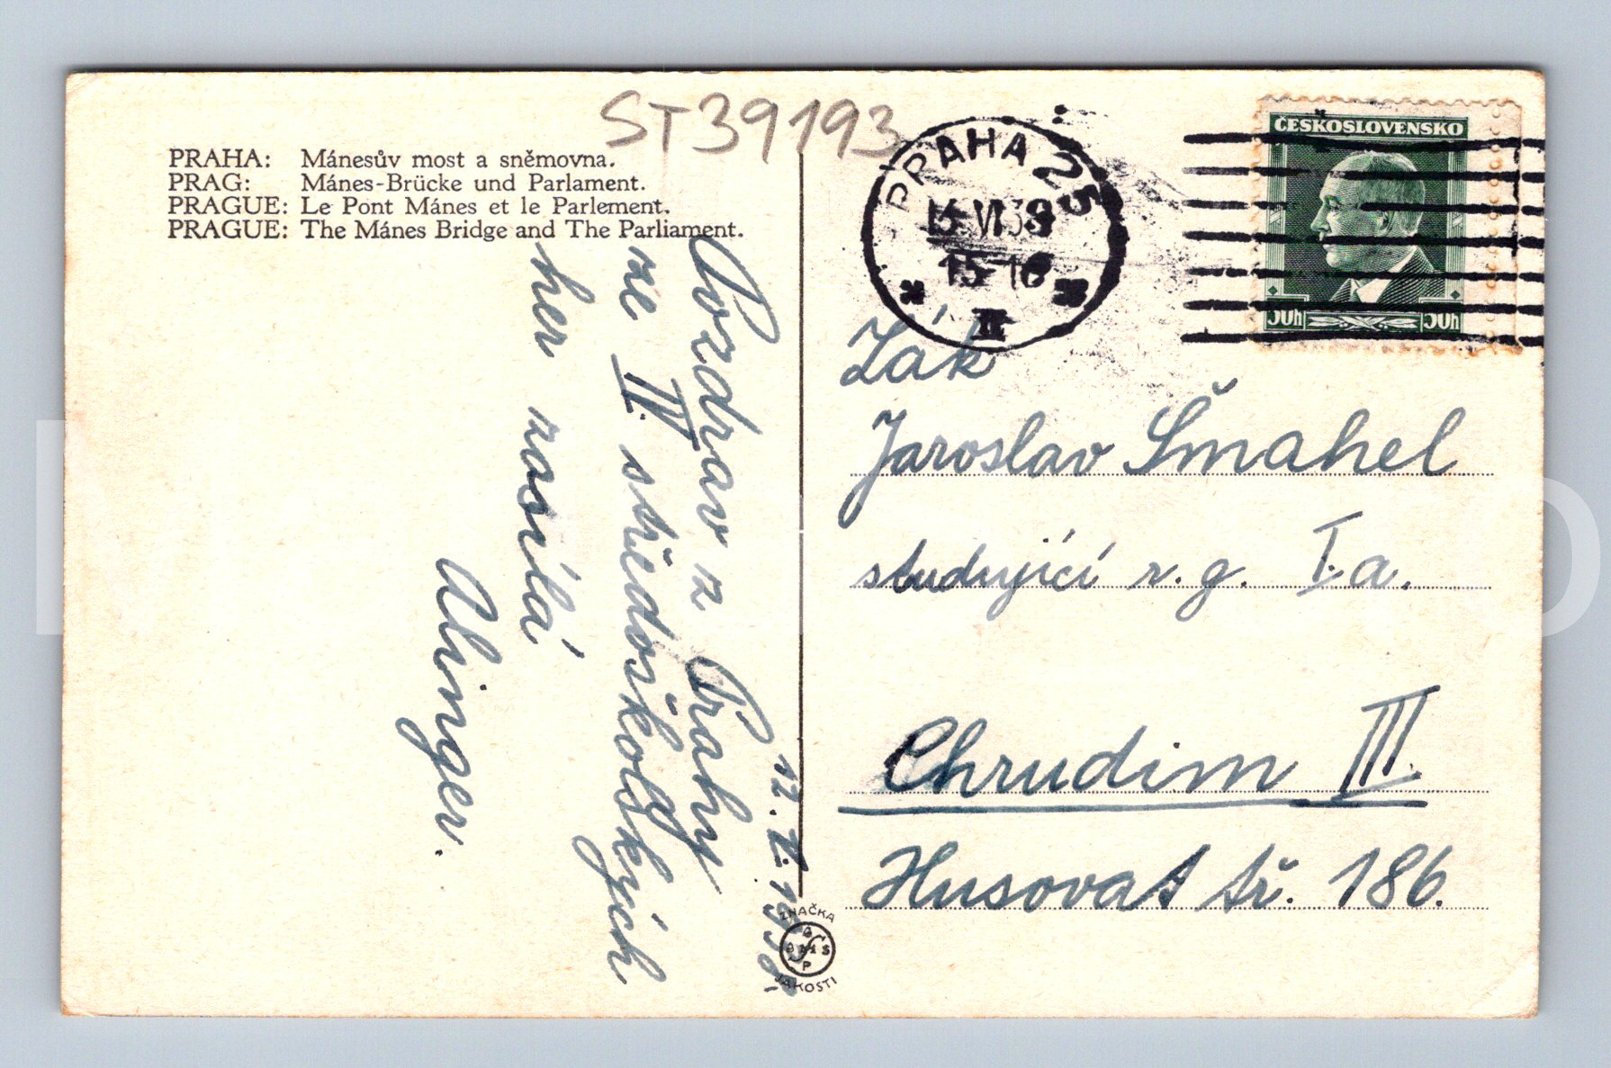 ST39193
PRAHA: Mánesův most a sněmovna.
PRAG: Mánes-Brücke und Parlament.
PRAGUE: Le Pont Mánes et le Parlement.
PRAGUE: The Mánes Bridge and The Parliament.
Pozdrav z Prahy
ze IV. středoškolských
her zasílá
Ulinger.
PRAHA 25
VI 38
15-16
II
ČESKOSLOVENSKO
50h 50h
Žák
Jaroslav Šmahel
studující r. g. I. a.
Chrudim III.
Husova tř. 186.
ZNAČKA
JAKOSTI